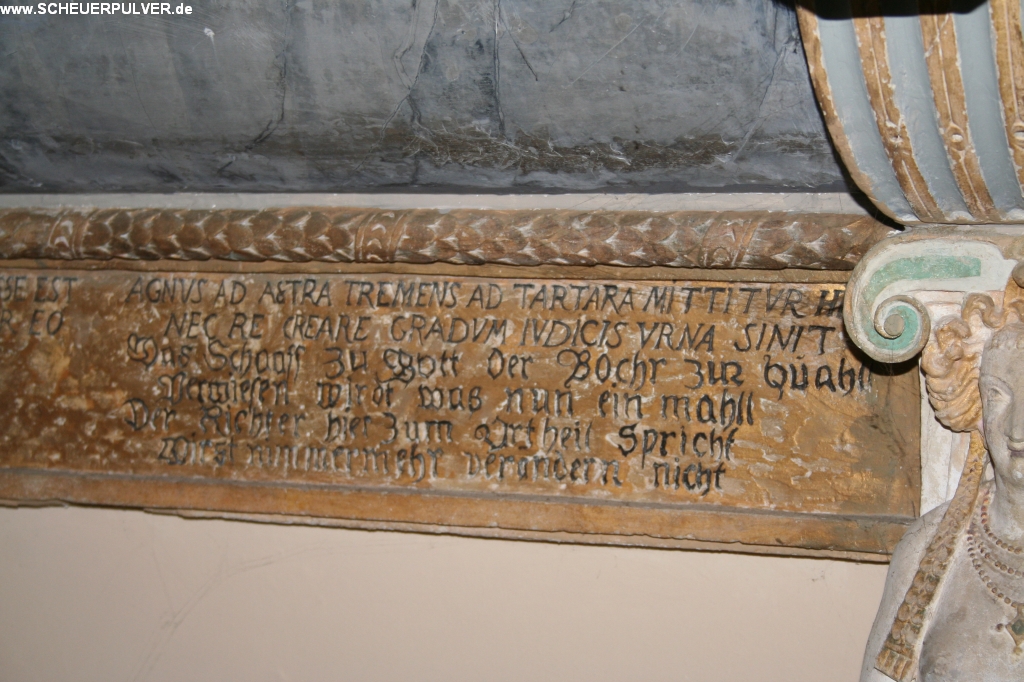 www.SCHEUERPULVER.de
EST
EO
AGNVS AD ASTRA TREMENS AD TARTARA MITTITVR
NEC RE CREARE GRADVM IVDICIS VRNA SINIT
Das Schaaff zu Gott der Bochr zur quahll
Verwiesen wirdt was nun ein mahll
Der Richter hier zum Urtheil Spricht
Wirdt nimmermehr verendern nicht